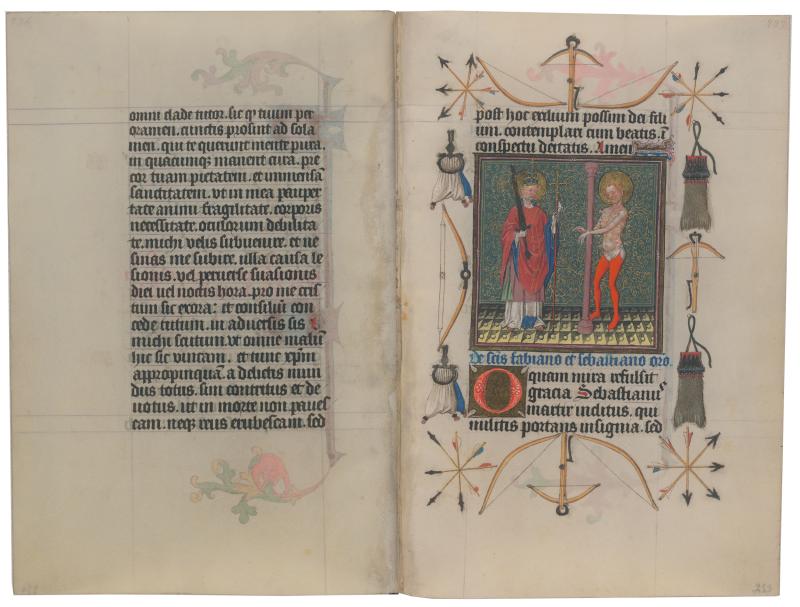 omni clade tutor. sic q̄ tuum per
oramen. cunctis prosint ad sola
men. qui te querunt mente pura.
in quacumq; manent cura. pre
cor tuam pietatem. et immensā
sanctitatem. vt in mea pauper
tate animi fragilitate. corporis
necessitate. oculorum debilita
te. michi velis subuenire. et ne
sinas me subire. ulla causa le
sionis. vel peruerse suasionis
diei uel noctis hora. pro me cris
tum sic exora: et consiliū con
cede tutum. in aduersis sis
michi scutum. vt omne malū
hic sic vincam. et tunc xpm̄
appropinquā. a delictis mun
dus totus. sim contritus et de
uotus. ut in morte non paues
cam. neq; reus erubescam. sed
post hoc exilium possim dei fili
um. contemplari cum beatis. ī
conspectu deitatis. Amen
de scīs fabiano et sebastiano orō.
O quam mira refulsit
gracia Sebastianus
martir inclitus. qui
militis portans insignia. sed